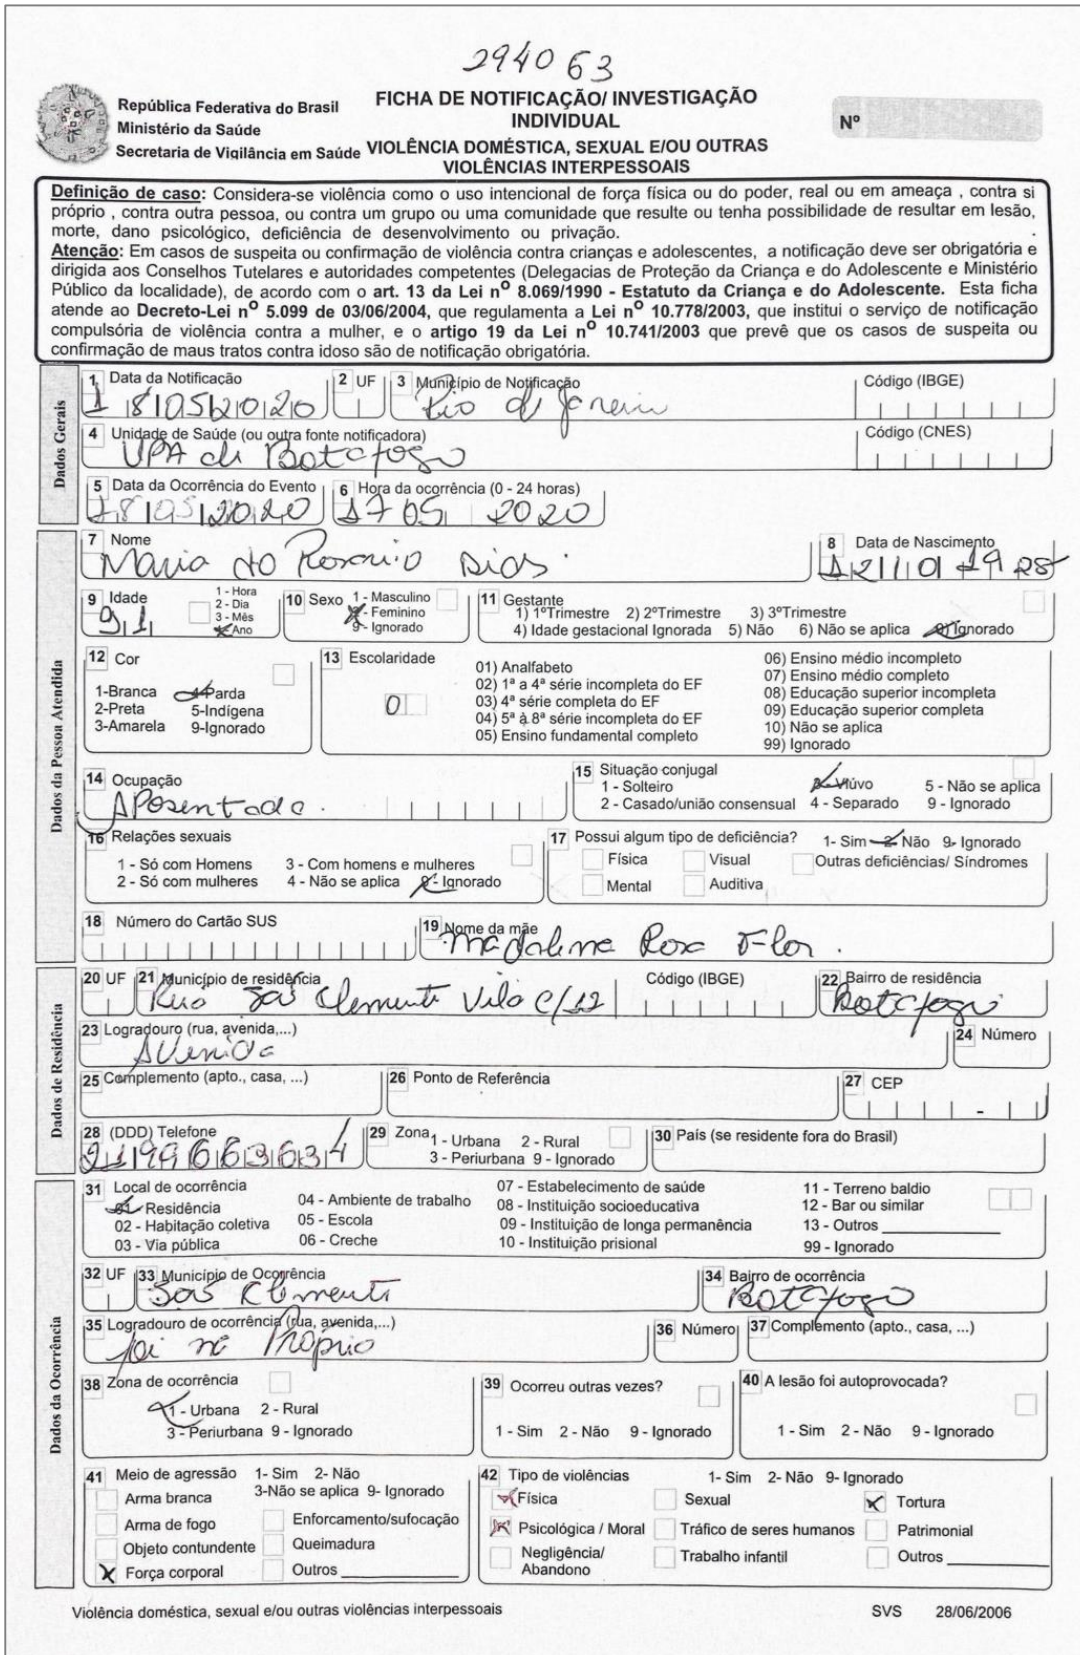 294063
República Federativa do Brasil
Ministério da Saúde
Secretaria de Vigilância em Saúde
FICHA DE NOTIFICAÇÃO/ INVESTIGAÇÃO
INDIVIDUAL
VIOLÊNCIA DOMÉSTICA, SEXUAL E/OU OUTRAS
VIOLÊNCIAS INTERPESSOAIS
Nº
Definição de caso: Considera-se violência como o uso intencional de força física ou do poder, real ou em ameaça , contra si
próprio , contra outra pessoa, ou contra um grupo ou uma comunidade que resulte ou tenha possibilidade de resultar em lesão,
morte, dano psicológico, deficiência de desenvolvimento ou privação.
Atenção: Em casos de suspeita ou confirmação de violência contra crianças e adolescentes, a notificação deve ser obrigatória e
dirigida aos Conselhos Tutelares e autoridades competentes (Delegacias de Proteção da Criança e do Adolescente e Ministério
Público da localidade), de acordo com o art. 13 da Lei nº 8.069/1990 - Estatuto da Criança e do Adolescente. Esta ficha
atende ao Decreto-Lei nº 5.099 de 03/06/2004, que regulamenta a Lei nº 10.778/2003, que institui o serviço de notificação
compulsória de violência contra a mulher, e o artigo 19 da Lei nº 10.741/2003 que prevê que os casos de suspeita ou
confirmação de maus tratos contra idoso são de notificação obrigatória.
Dados Gerais
1 Data da Notificação 2 UF 3 Município de Notificação Código (IBGE)
18 05 2020 Rio de Janeiro
4 Unidade de Saúde (ou outra fonte notificadora) Código (CNES)
UPA de Botafogo
5 Data da Ocorrência do Evento 6 Hora da ocorrência (0 - 24 horas)
18 05 2020 17 05 2020
Dados da Pessoa Atendida
7 Nome 8 Data de Nascimento
Maria do Rosario Dias
9 Idade 1 - Hora 2 - Dia 3 - Mês 4 - Ano
91
10 Sexo 1 - Masculino 2 - Feminino 9 - Ignorado
11 Gestante
1) 1ºTrimestre 2) 2ºTrimestre 3) 3ºTrimestre
4) Idade gestacional Ignorada 5) Não 6) Não se aplica 9) Ignorado
12 Cor
1-Branca 4-Parda
2-Preta 5-Indígena
3-Amarela 9-Ignorado
13 Escolaridade
0
01) Analfabeto
02) 1ª a 4ª série incompleta do EF
03) 4ª série completa do EF
04) 5ª à 8ª série incompleta do EF
05) Ensino fundamental completo
06) Ensino médio incompleto
07) Ensino médio completo
08) Educação superior incompleta
09) Educação superior completa
10) Não se aplica
99) Ignorado
14 Ocupação
Aposentada.
15 Situação conjugal
1 - Solteiro 3 - Viúvo 5 - Não se aplica
2 - Casado/união consensual 4 - Separado 9 - Ignorado
16 Relações sexuais
1 - Só com Homens 3 - Com homens e mulheres
2 - Só com mulheres 4 - Não se aplica 9 - Ignorado
17 Possui algum tipo de deficiência? 1- Sim 2- Não 9- Ignorado
Física Visual Outras deficiências/ Síndromes
Mental Auditiva
18 Número do Cartão SUS 19 Nome da mãe
Madalena Rosa Flor.
Dados de Residência
20 UF 21 Município de residência Código (IBGE) 22 Bairro de residência
Rua São Clemente Vila C/12 Botafogo
23 Logradouro (rua, avenida,...) 24 Número
Avenida
25 Complemento (apto., casa, ...) 26 Ponto de Referência 27 CEP
28 (DDD) Telefone
2199663634
29 Zona 1 - Urbana 2 - Rural
3 - Periurbana 9 - Ignorado
30 País (se residente fora do Brasil)
Dados da Ocorrência
31 Local de ocorrência
01 - Residência
02 - Habitação coletiva
03 - Via pública
04 - Ambiente de trabalho
05 - Escola
06 - Creche
07 - Estabelecimento de saúde
08 - Instituição socioeducativa
09 - Instituição de longa permanência
10 - Instituição prisional
11 - Terreno baldio
12 - Bar ou similar
13 - Outros
99 - Ignorado
32 UF 33 Município de Ocorrência 34 Bairro de ocorrência
São Clemente Botafogo
35 Logradouro de ocorrência (rua, avenida,...) 36 Número 37 Complemento (apto., casa, ...)
foi no Próprio
38 Zona de ocorrência
1 - Urbana 2 - Rural
3 - Periurbana 9 - Ignorado
39 Ocorreu outras vezes?
1 - Sim 2 - Não 9 - Ignorado
40 A lesão foi autoprovocada?
1 - Sim 2 - Não 9 - Ignorado
41 Meio de agressão 1- Sim 2- Não
3-Não se aplica 9- Ignorado
Arma branca
Arma de fogo Enforcamento/sufocação
Objeto contundente Queimadura
X Força corporal Outros
42 Tipo de violências 1- Sim 2- Não 9- Ignorado
X Física Sexual X Tortura
X Psicológica / Moral Tráfico de seres humanos Patrimonial
Negligência/ Abandono Trabalho infantil Outros
Violência doméstica, sexual e/ou outras violências interpessoais SVS 28/06/2006